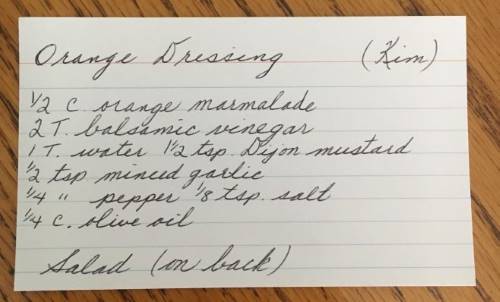 Orange Dressing (Kim)
1/2 c. orange marmalade
2 T. balsamic vinegar
1 T. water 1 1/2 tsp. Dijon mustard
1/2 tsp minced garlic
1/4 " pepper 1/8 tsp. salt
1/4 c. olive oil
Salad (on back)